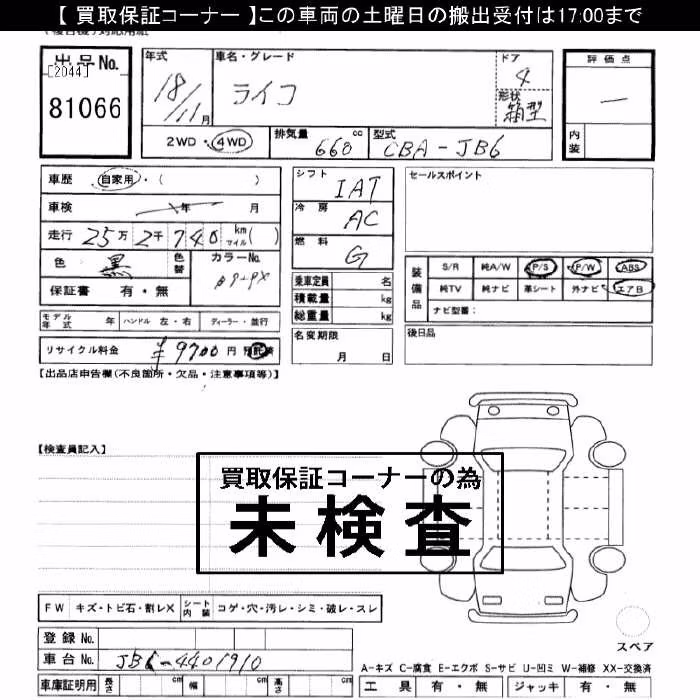 【 買取保証コーナー 】この車両の土曜日の搬出受付は17:00まで
出品No. 年式 車名・グレード ドア 評価点
[2044] 18/11月 ライフ 4 —
81066 形状 箱型
2WD・4WD 排気量 660 cc 型式 CBA-JB6 内装
車歴 自家用・( ) シフト IAT セールスポイント
車検 年 月 冷房 AC
走行 25万2千740 km マイル( ) 燃料 G
色 黒 色替 カラーNo. 装備品 S/R 純A/W P/S P/W ABS
保証書 有・無 乗車定員 名 純TV 純ナビ 革シート 外ナビ エアB
積載量 kg ナビ型番:
モデル年式 年 ハンドル 左・右 ディーラー・並行 総重量 kg 後日品
リサイクル料金 ¥9700円 預託済 名変期限 月 日
【出品店申告欄(不良箇所・欠品・注意事項等)】
【検査員記入】
買取保証コーナーの為
未検査
FW キズ・トビ石・割レX シート内装 コゲ・穴・汚レ・シミ・破レ・スレ
登録No. スペア
車台No. JB6-4401910 A-キズ C-腐食 E-エクボ S-サビ U-凹ミ W-補修 XX-交換済
車庫証明用 長さ cm 幅 cm 高さ cm 工具 有・無 ジャッキ 有・無